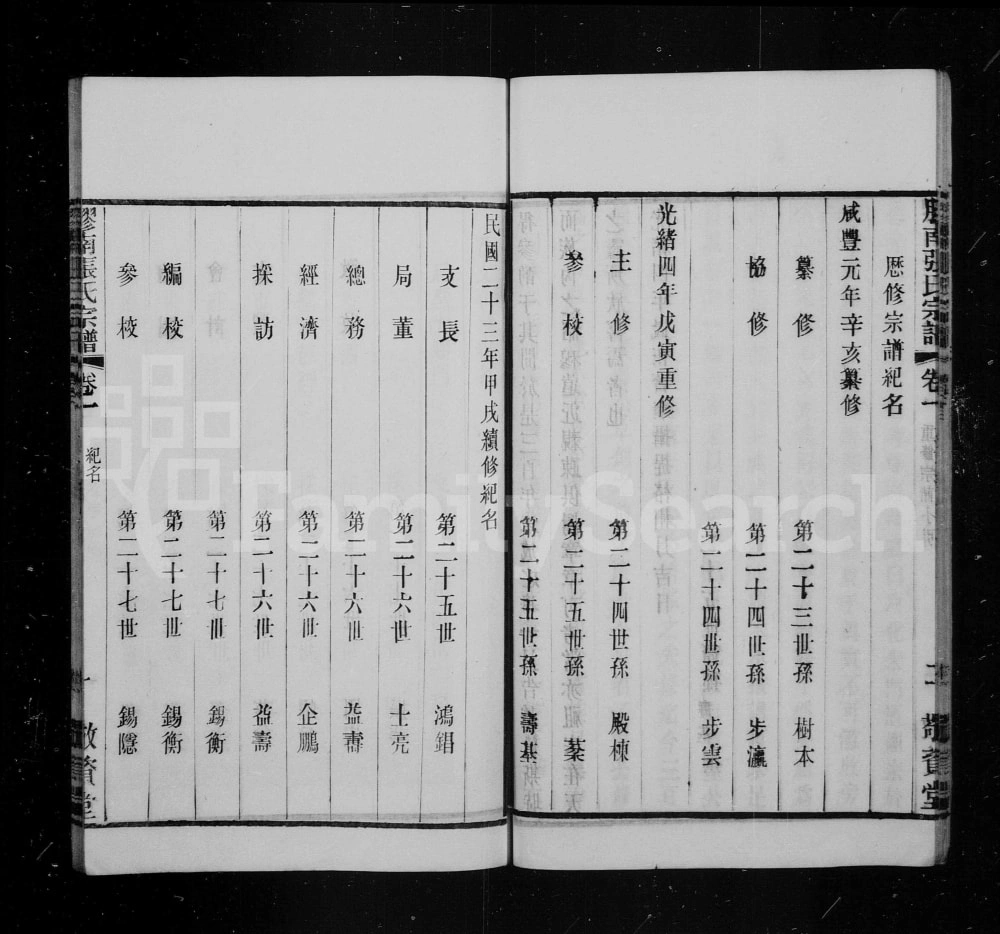 歴修宗譜紀名
咸豐元年辛亥纂修
纂修 第二十三世孫 樹本
協修 第二十四世孫 步瀛
第二十四世孫 步雲
光緒四年戊寅重修
主修 第二十四世孫 殿棟
參校 第二十五世孫 蓁
第二十五世孫 壽基
民國二十三年甲戌續修紀名
支長 第二十五世 鴻錩
局董 第二十六世 士亮
總務 第二十六世 益壽
經濟 第二十六世 企鵬
採訪 第二十六世 益壽
第二十七世 錫衡
編校 第二十七世 錫衡
參校 第二十七世 錫隱
膠南張氏宗譜 卷一 紀名
FamilySearch